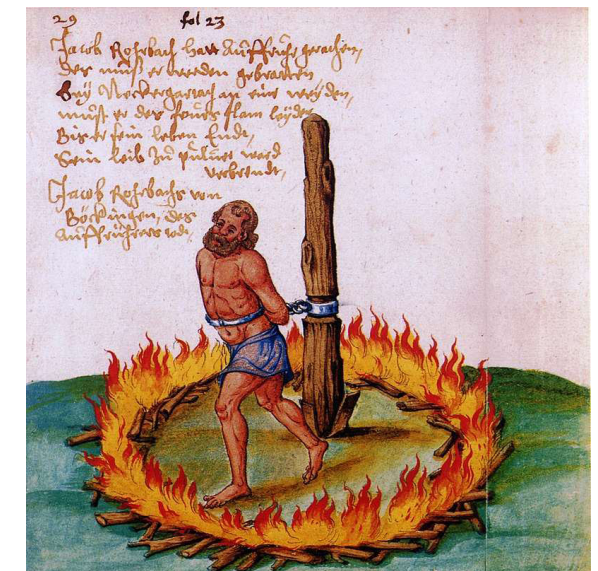 29 fol 23
Jacob Rohrbach hatt Auffruhr gemachen,
Des muß er werden gebratten
Bey Neckergartach an eine weyden,
mußt er des feürs flam leyden
Bis er sein leben Endt,
Sein leib zu puluer ward
verbrendt,
Jacob Rohrbachs von
Böckingen, des
Auffrührers todt,